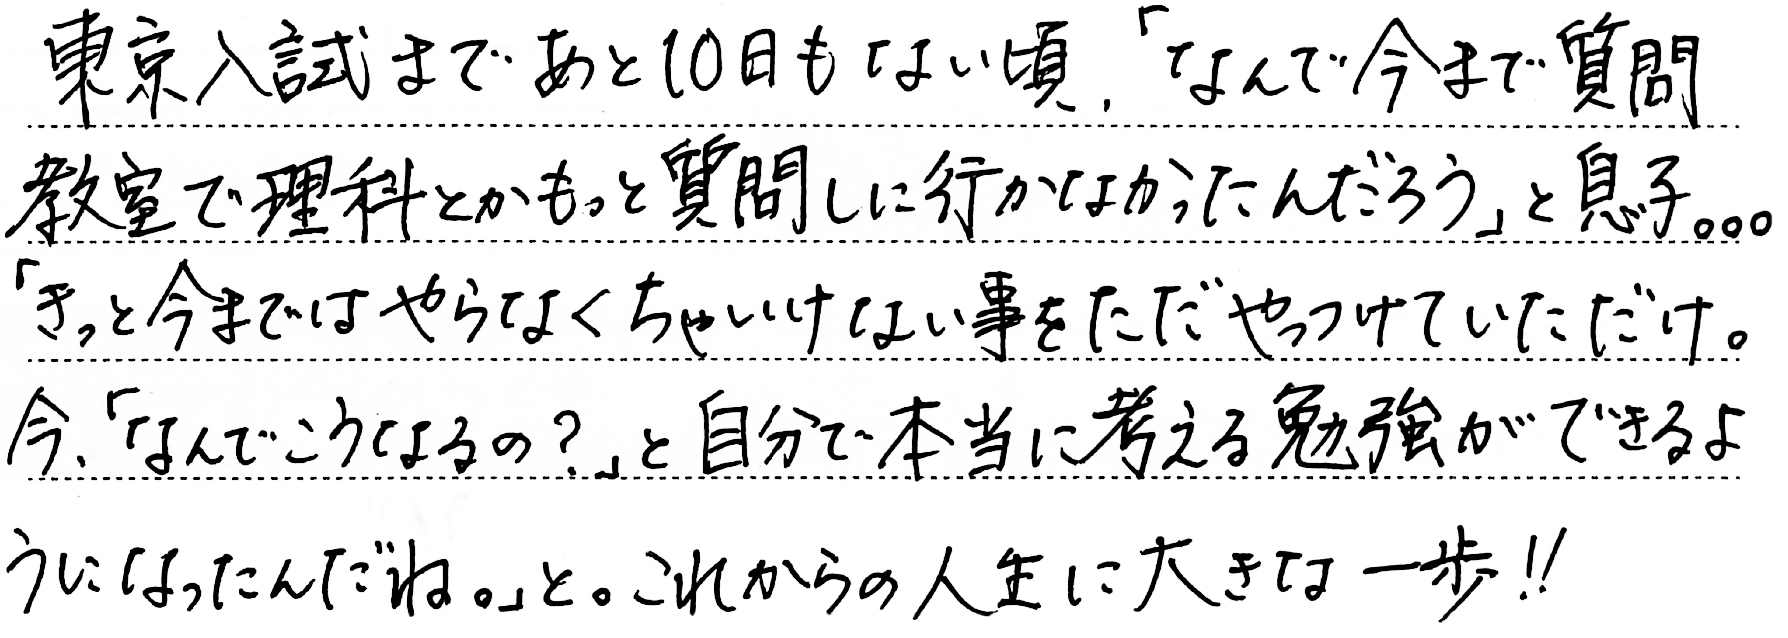 東京入試まであと10日もない頃、「なんで今まで質問
教室で理科とかもっと質問しに行かなかったんだろう」と息子。。。
「きっと今まではやらなくちゃいけない事をただやっつけていただけ。
今、「なんでこうなるの？」と自分で本当に考える勉強ができるよ
うになったんだね。」と。これからの人生に大きな一歩!!